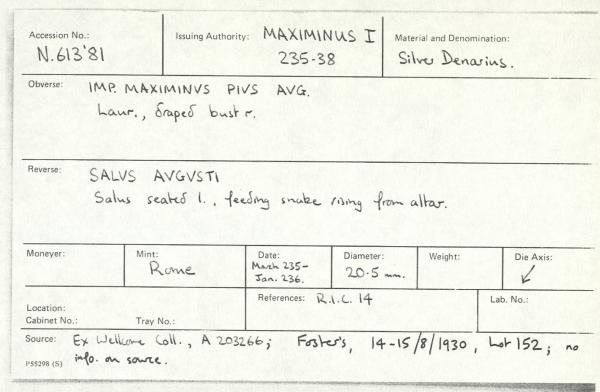 Accession No.: Issuing Authority: MAXIMINUS I Material and Denomination:
N.613'81 235-38 Silver Denarius.
Obverse: IMP. MAXIMINVS PIVS AVG.
Laur., draped bust r.
Reverse: SALVS AVGVSTI
Salus seated l., feeding snake rising from altar.
Moneyer: Mint: Date: Diameter: Weight: Die Axis:
Rome March 235- 20.5 mm. ↙
Jan. 236.
References: R.I.C. 14 Lab. No.:
Location:
Cabinet No.: Tray No.:
Source: Ex Wellcome Coll., A 203266; Foster's, 14-15/8/1930, Lot 152; no
P55298 (S) info. on source.